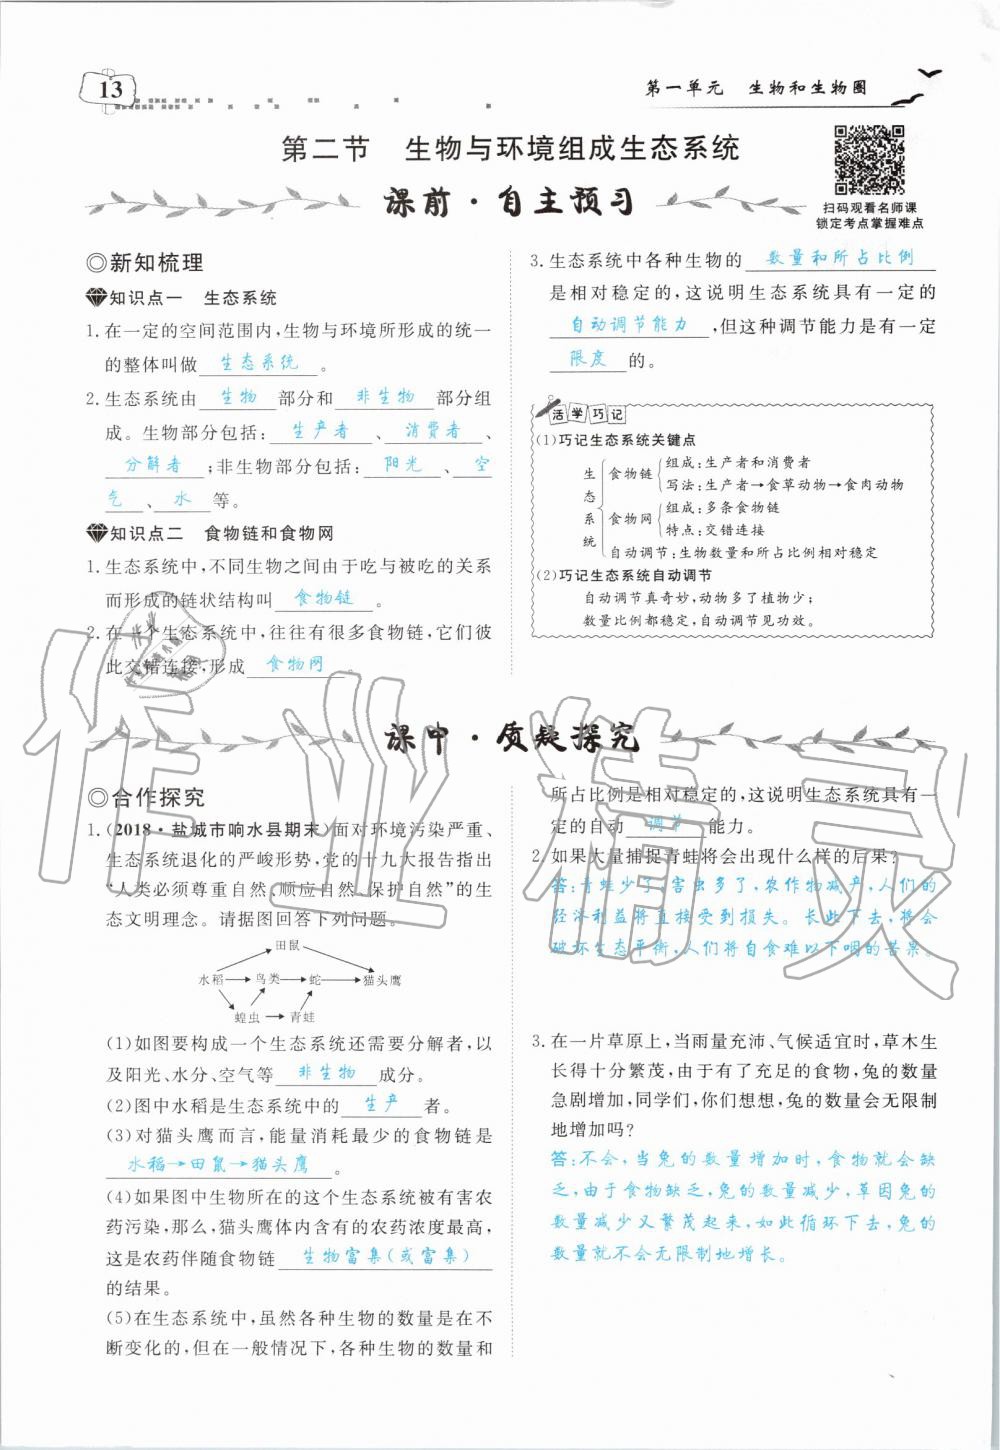 13
第一单元 生物和生物圈
第二节 生物与环境组成生态系统
扫码观看名师课
锁定考点掌握难点
课前·自主预习
◎新知梳理
知识点一 生态系统
1.在一定的空间范围内,生物与环境所形成的统一
的整体叫做 生态系统 。
2.生态系统由 生物 部分和 非生物 部分组
成。生物部分包括: 生产者 、 消费者 、
分解者 ;非生物部分包括: 阳光 、 空
气 、 水 等。
知识点二 食物链和食物网
1.生态系统中,不同生物之间由于吃与被吃的关系
而形成的链状结构叫 食物链 。
2.在一个生态系统中,往往有很多食物链,它们彼
此交错连接,形成 食物网 。
3.生态系统中各种生物的 数量和所占比例
是相对稳定的,这说明生态系统具有一定的
自动调节能力 ,但这种调节能力是有一定
限度 的。
活学巧记
(1)巧记生态系统关键点
生态系统
食物链
组成:生产者和消费者
写法:生产者→食草动物→食肉动物
食物网
组成:多条食物链
特点:交错连接
自动调节:生物数量和所占比例相对稳定
(2)巧记生态系统自动调节
自动调节真奇妙,动物多了植物少;
数量比例都稳定,自动调节见功效。
课中·质疑探究
◎合作探究
1.(2018·盐城市响水县期末)面对环境污染严重、
生态系统退化的严峻形势,党的十九大报告指出
“人类必须尊重自然、顺应自然、保护自然”的生
态文明理念。请据图回答下列问题。
田鼠
水稻 鸟类 蛇 猫头鹰
蝗虫 青蛙
(1)如图要构成一个生态系统还需要分解者,以
及阳光、水分、空气等 非生物 成分。
(2)图中水稻是生态系统中的 生产 者。
(3)对猫头鹰而言,能量消耗最少的食物链是
水稻→田鼠→猫头鹰 。
(4)如果图中生物所在的这个生态系统被有害农
药污染,那么,猫头鹰体内含有的农药浓度最高,
这是农药伴随食物链 生物富集(或富集)
的结果。
(5)在生态系统中,虽然各种生物的数量是在不
断变化的,但在一般情况下,各种生物的数量和
所占比例是相对稳定的,这说明生态系统具有一
定的自动 调节 能力。
2.如果大量捕捉青蛙将会出现什么样的后果?
答:青蛙少了,害虫多了,农作物减产,人们的
经济利益将直接受到损失。长此下去,将会
破坏生态平衡,人们将自食难以下咽的苦果。
3.在一片草原上,当雨量充沛、气候适宜时,草木生
长得十分繁茂,由于有了充足的食物,兔的数量
急剧增加,同学们,你们想想,兔的数量会无限制
地增加吗?
答:不会,当兔的数量增加时,食物就会缺
乏,由于食物缺乏,兔的数量减少,草因兔的
数量减少又繁茂起来,如此循环下去,兔的
数量就不会无限制地增长。
作业精灵